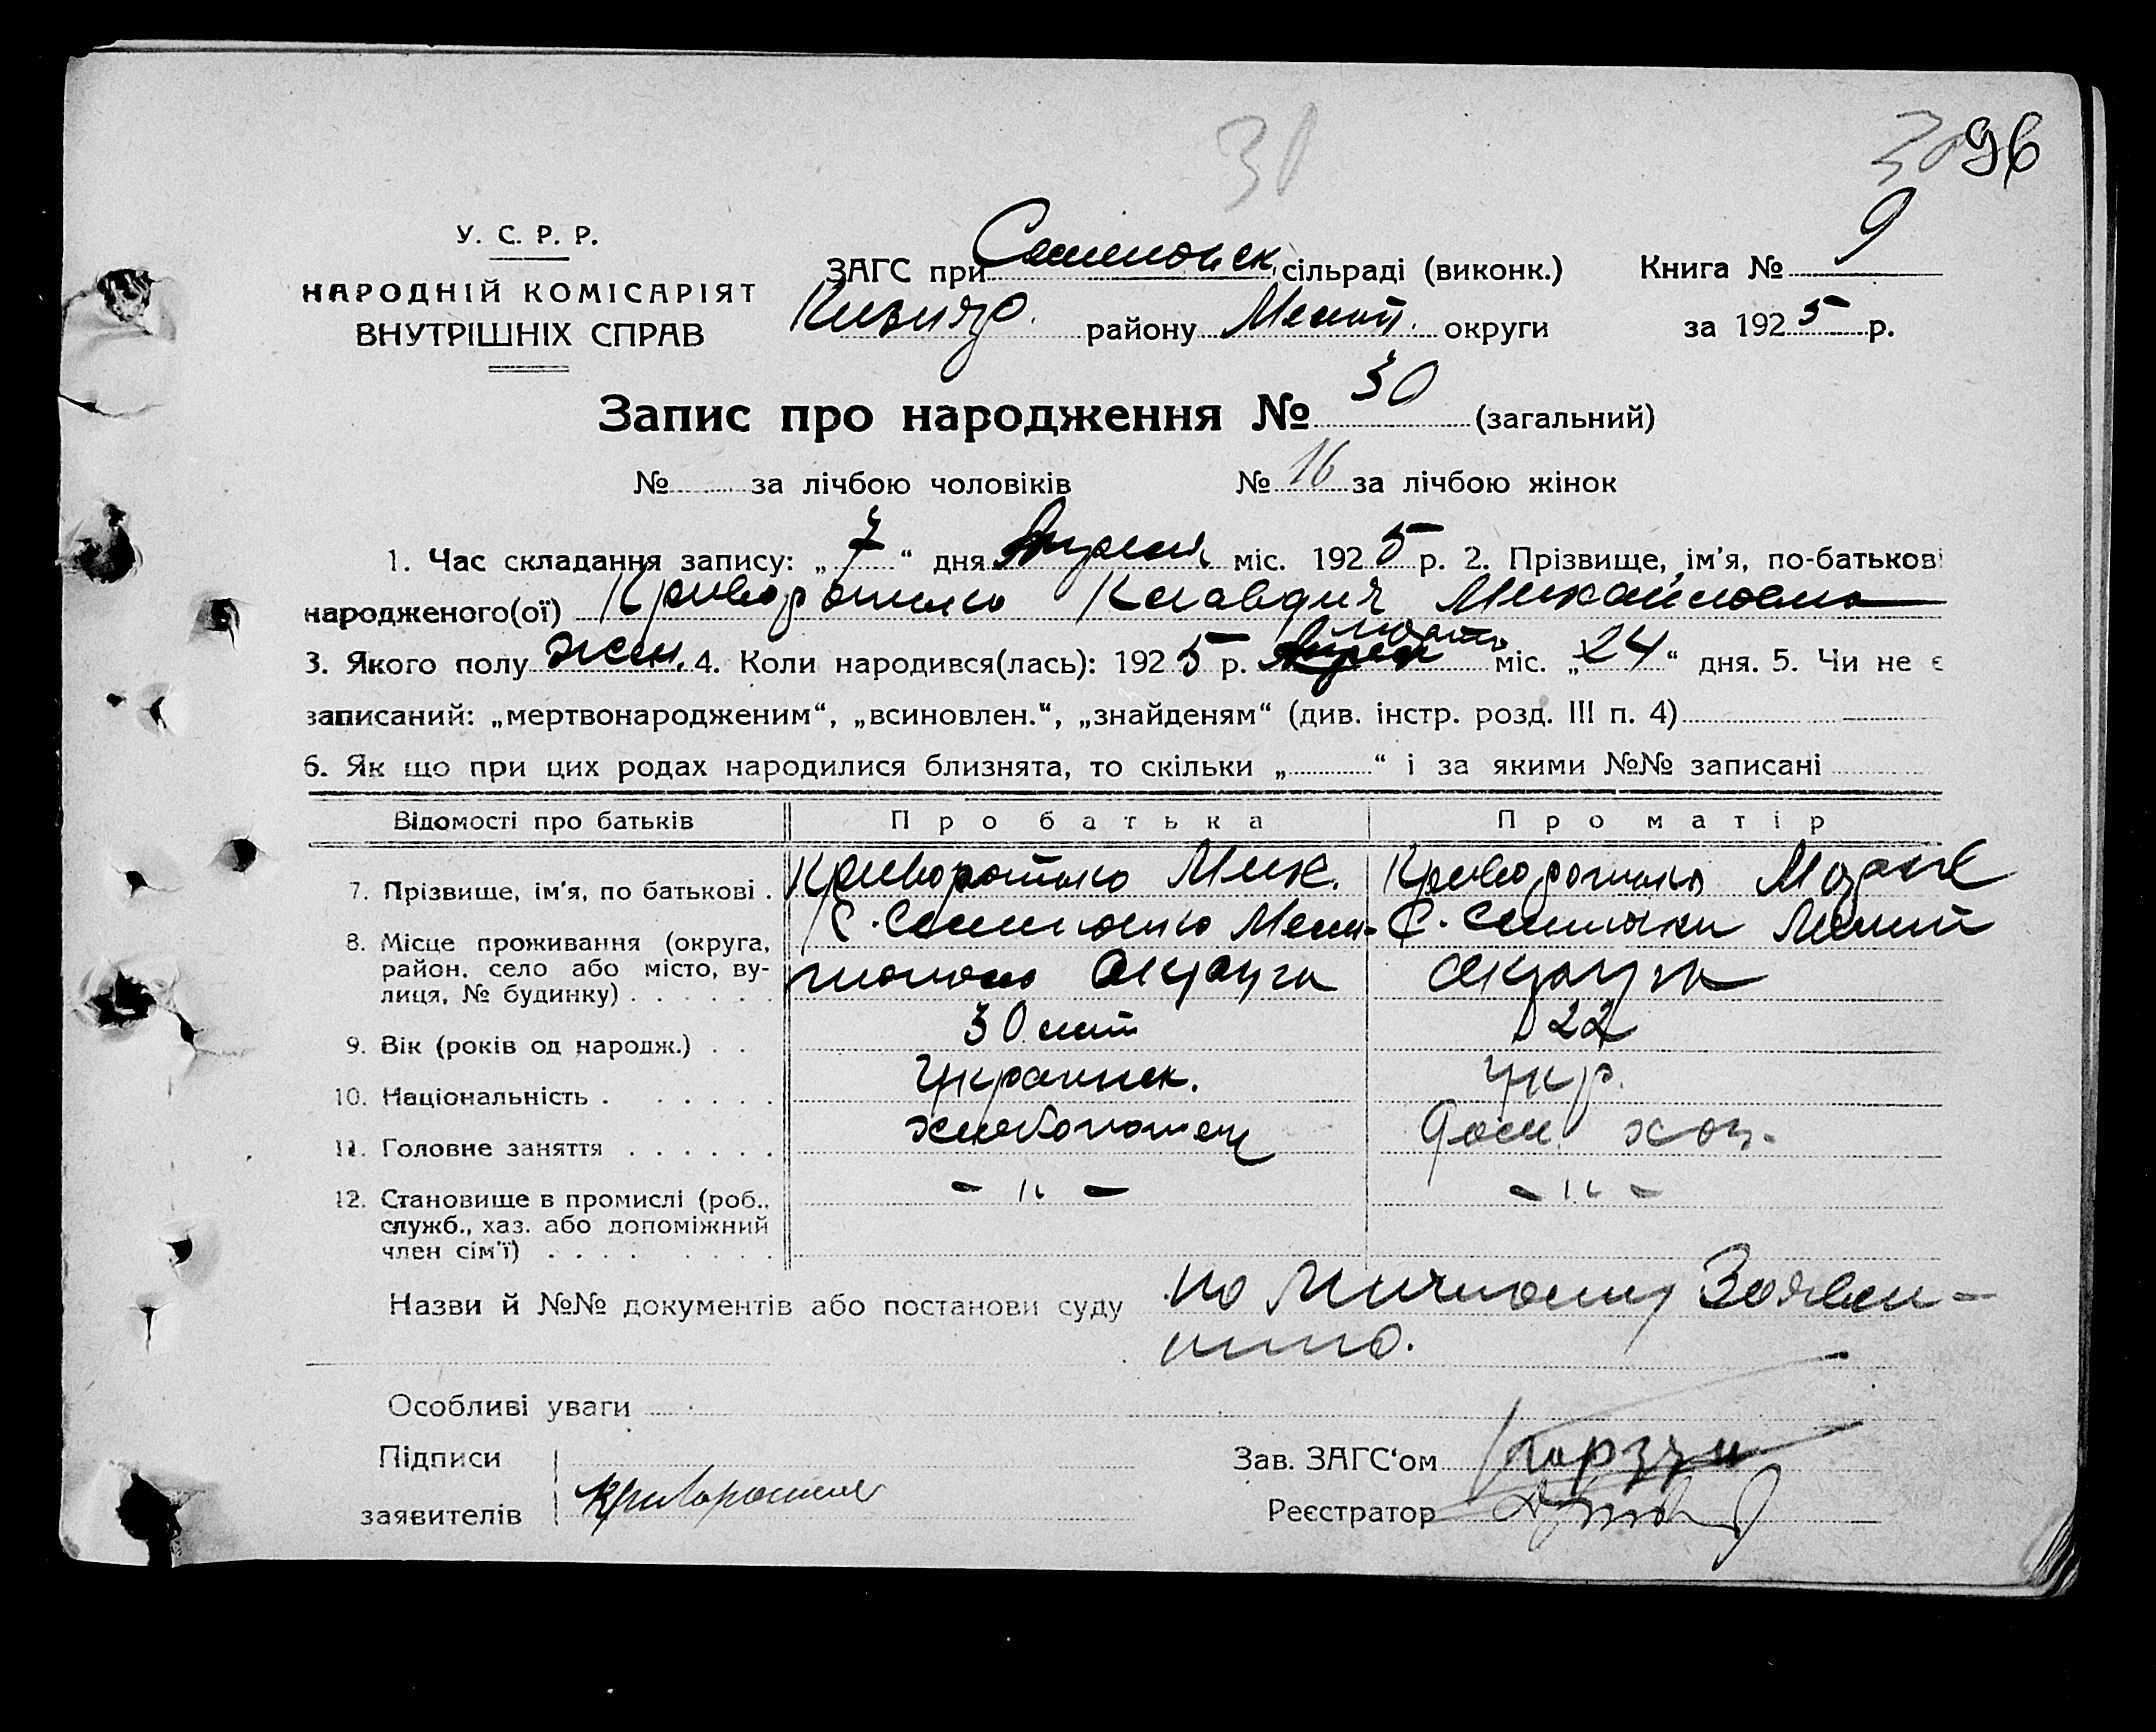 30
30 96
У. С. Р. Р.
НАРОДНІЙ КОМІСАРІЯТ
ВНУТРІШНІХ СПРАВ
ЗАГС при сільраді (виконк.) Книга № 9
району округи за 1925 р.
Запис про народження № 30 (загальний)
№ за лічбою чоловіків № 16 за лічбою жінок
1. Час складання запису: „7“ дня Апреля міс. 1925 р. 2. Прізвище, ім’я, по-батькові
народженого(ої) Криворотько Клавдия Михайловна
3. Якого полу жен. 4. Коли народився(лась): 1925 р. міс. „24“ дня. 5. Чи не є
записаний: „мертвонародженим“, „всиновлен.“, „знайденям“ (див. інстр. розд. III п. 4)
6. Як що при цих родах народилися близнята, то скільки „ “ і за якими №№ записані
Відомості про батьків Про батька Про матір
7. Прізвище, ім’я, по батькові . Криворотько Мих. Криворотько
8. Місце проживання (округа,
район, село або місто, ву-
лиця, № будинку) . . . . . . округа округа
9. Вік (років од народж.) . . 30 лет 22
10. Національність . . . . . . Украинск. Укр.
11. Головне заняття . . . . . . хлебопашец дом. хоз.
12. Становище в промислі (роб., - " - - " -
служб., хаз. або допоміжний
член сім’ї) . . . . . . . .
Назви й №№ документів або постанови суду по личному Заявле-
нию.
Особливі уваги
Підписи Зав. ЗАГС‘ом
заявителів Криворотько Реєстратор